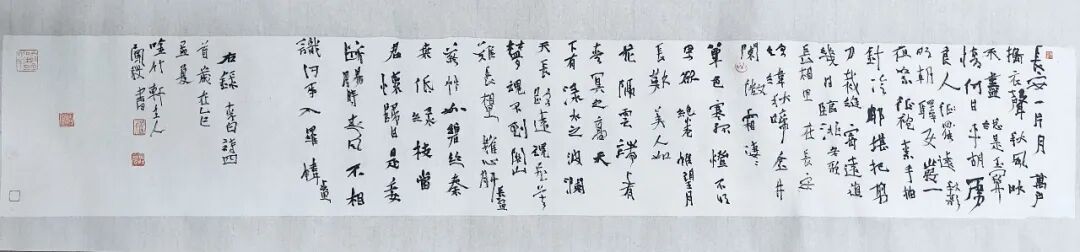 長安一片月 萬戶
擣衣聲 秋風吹
不盡 總是玉關
情何日平胡虜
良人罷遠征 秋歌
明朝驛使發 一
夜絮征袍 素手抽
針冷 那堪把剪
刀裁縫寄遠道
幾日臨洮 冬歌
長相思 在長安
絡緯秋啼金井
闌微霜淒淒
簟色寒孤燈不明
思欲絕卷帷望月
長歎 美人如
花隔雲端上有
青冥之高天
下有淥水之波瀾
天長路遠魂飛苦
夢魂不到關山
難長相思 摧心肝
燕草如碧絲秦
桑低綠枝當
君懷歸日是妾
斷腸時春風不相
識何事入羅幃
右錄李白詩四
首歲在乙巳
孟夏
竹軒主人
書